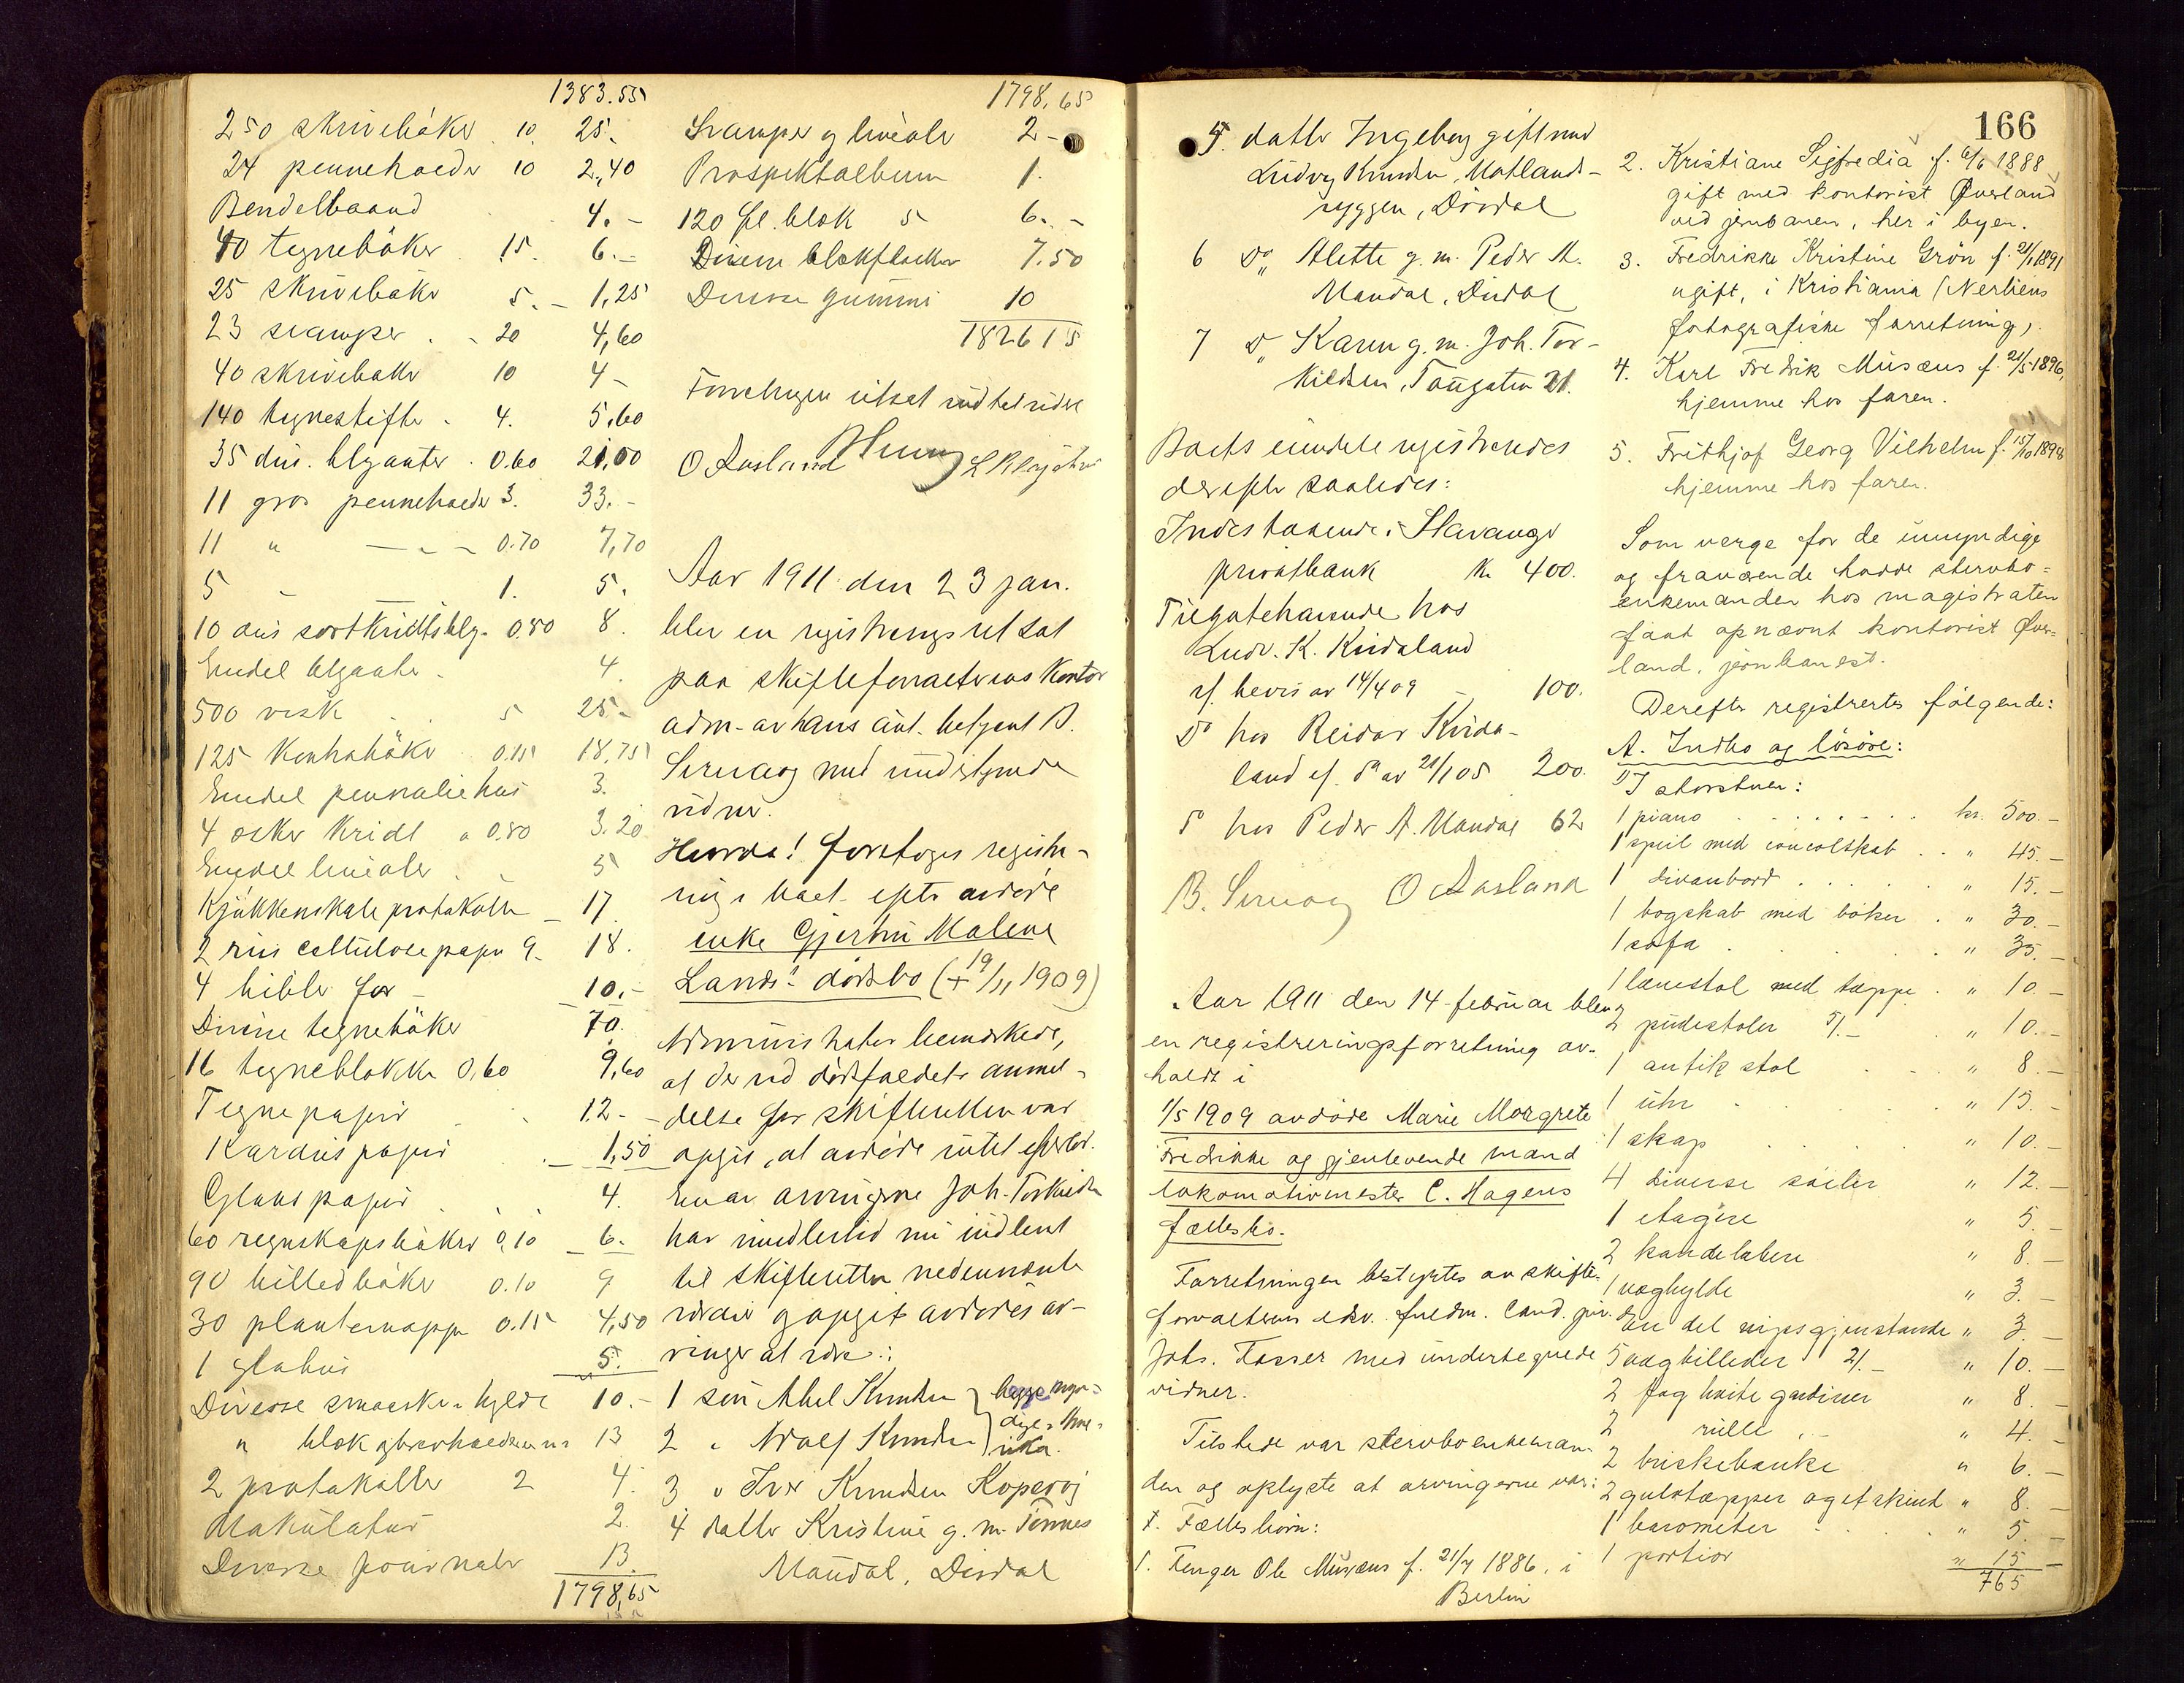 1383.55
250 skrivebøker 10. 25.
24 penneholder 10 2,40
Bendelbaand 4.-
40 tegnebøker 15. 6.-
25 skrivebøker 5.- 1,25
23 svamper . - 20 4,60
40 skrivebøker 10 4-
140 tegnestifter - 4. 5,60
35 dus. blyanter . 0.60 21,00
11 gros penneholder 3. 33.-
11 " — " — 0.70 7,70
5 - — 1. 5.
10 dus sortkridtsbly. 0.80 8.
Endel blyanter . 4.
500 visk . . 5 25-
125 Kontrabøker 0.15 18,75
Endel pennaliehus 3.
4 æsker Kridt a 0.80 3.20
Endel linealer . - 5
Kjøkkenskale protokoller - 17.
2 ris cellulose papir 9- 18.
4 bibler for - 10.-
Diverse tegnebøker 70.
16 tegneblokke 0,60 9,60
Tegnepapir . . 12-
Karduspapir . - 1,50
Glanspapir . . 4.
60 regnskapsbøker 0,10 - 6.
90 billedbøker 0.10 9
30 plantemapper 0.15 4,50
1 globus 5.
Diverse smaaesker hylde 10.-
" blok 13
2 protokoller 2 4.
Makulatur 2.
Diverse journaler 13.
1798,65
1798,65
Svamper og linealer 2-
Prospektalbum 1.
120 fl. blæk 5 6.-
Diverse blækflasker 7.50
Diverse gummi 10
1826 15
Forretningen utsat indtil videre
O Aasland
Aar 1911 den 23 jan.
blev en registreringsret sat
paa skifteforvalterens Kontor
adm. av hans aut. betjent B.
Servaag med undertegnede
vidner.
Hvorda! foretoges registre-
ring i boet efter avdøde
enke Gjertru Malene
Lands! dødsbo (+ 19/11 1909)
Administrator bemerkede,
at der ved dødsfaldets anmel-
delse for skifteretten var
opgit, at avdøde intet efterlot.
En av arvingerne Joh. Torkildsen
har imidlertid nu indlevert
til skifteretten nedennævnte
verdier og opgit avdødes ar-
vinger at være:
1 søn Abel Knudsen } begge myn-
2 " Adolf Knudsen } dige, Ame-
rika.
3 " Iver Knudsen Kopervig
4 datter Kristine g. m. Tønnes
Maudal, Dirdal
5. datter Ingeborg gift med
Ludvig Knudsen, Matlands-
ryggen, Dirdal
6 Do Alette g. m. Peder A.
Maudal, Dirdal
7 Do Karen g. m. Joh. Tor-
kildsen, Taugaten 21.
Boets eiendele registreredes
derefter saaledes:
Indestaaende i Stavanger
privatbank kr 400.
Tilgodehavende hos
Ludv. K. Kvidaland
if. bevis av 14/4 09 - 100.
Do hos Reidar Kvida-
land if. do av 21/1 05 200.
Do hos Peder A. Maudal 62
B. Servaag O Aasland
Aar 1911 den 14 februar blev
en registreringsforretning av-
holdt i
1/5 1909 avdøde Marie Margrete
Fredrikke og gjenlevende mand
lokomotivmester C. Hagens
fællesbo.
Forretningen bestyrtes av skifte-
forvalterens edsv. fuldm. Cand. jur.
Johs. Fosser med undertegnede
vidner.
Tilstede var stervboenkeman-
den og oplyste at arvingerne var:
I. Fællesbørn:
1. Fenger Ole Musæus f. 21/7 1886, i
Berlin
166
2. Kristiane Sigfredia f. 6/6 1888
gift med kontorist Øverland
ved jernbanen, her i byen.
3. Fredrikke Kristine Grön f. 21/1 1891
ugift, i Kristiania (Nerliens
fotografiske forretning).
4. Karl Fredrik Musæus f. 21/5 1896,
hjemme hos faren.
5. Frithjof Georg Vilhelm f. 15/10 1898
hjemme hos faren.
Som verge for de umyndige
og fraværende hadde stervbo-
enkemanden hos magistraten
faat opnævnt kontorist Øver-
land, jernbanest.
Derefter registrertes følgende:
A. Indbo og løsøre:
I storstuen:
1 piano . . . . . . . kr. 500.-
1 speil med consolskab . . " 45.-
1 divanbord . . . . . " 15.-
1 bogskab med bøker . " 30.-
1 sofa . . . . " 35.-
1 lænestol med tæppe . " 10.-
2 pudestoler 5/- . " 10.-
1 antik stol . . " 8.-
1 uhr . . . " 15.-
1 skap . . . " 10.-
4 diverse søiler " 12.-
1 etagère " 5.-
2 kandelabere " 8.-
1 væghylde " 3.-
En del nipsgjenstande " 3.-
5 vægbilleder 2/- " 10.-
2 fag hvite gardiner " 8.-
2 rulle " 4.-
2 briskebænke " 6.-
2 gulvtæpper og et skind " 8.-
1 barometer . . . " 5.-
1 portier " 15-
765